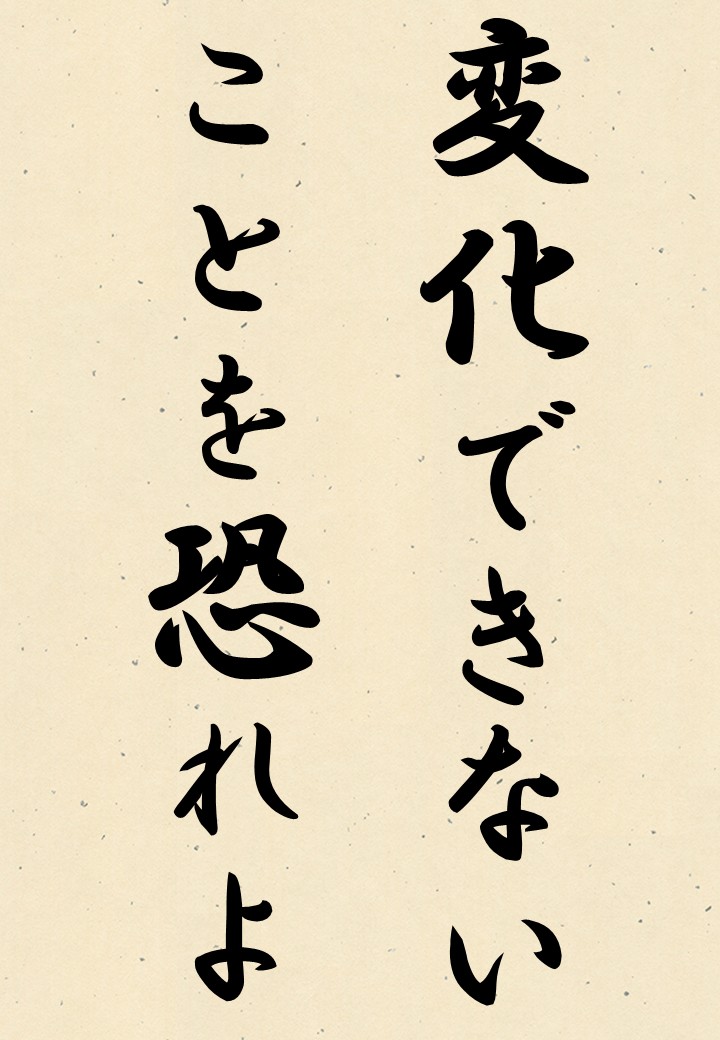 変化できない
ことを恐れよ